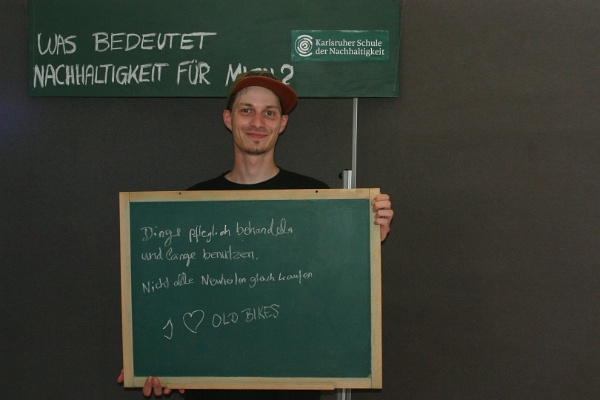 WAS BEDEUTET
NACHHALTIGKEIT FÜR MICH?
Karlsruher Schule
der Nachhaltigkeit
Dinge pfleglich behandeln
und lange benutzen.
Nicht alle Neuheiten gleich kaufen
I ♡ OLD BIKES